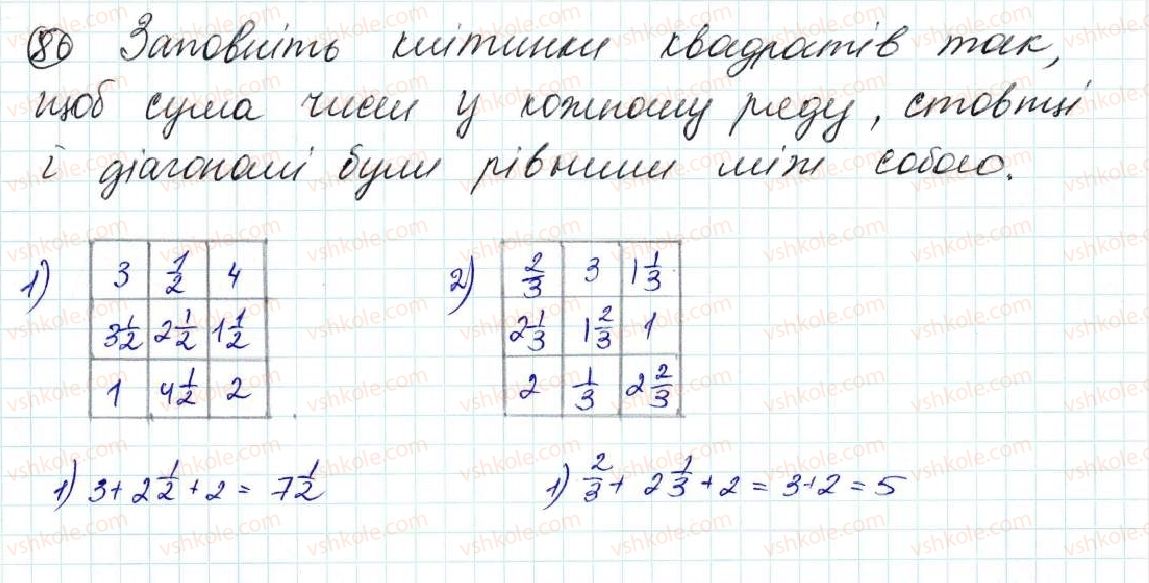 86 Заповніть клітинки квадратів так,
щоб сума чисел у кожному ряду, стовпці
і діагоналі були рівними між собою.
1) 3 1/2 4
3 1/2 2 1/2 1 1/2
1 4 1/2 2
2) 2/3 3 1 1/3
2 1/3 1 2/3 1
2 1/3 2 2/3
1) 3 + 2 1/2 + 2 = 7 1/2
1) 2/3 + 2 1/3 + 2 = 3 + 2 = 5
vshkole.com